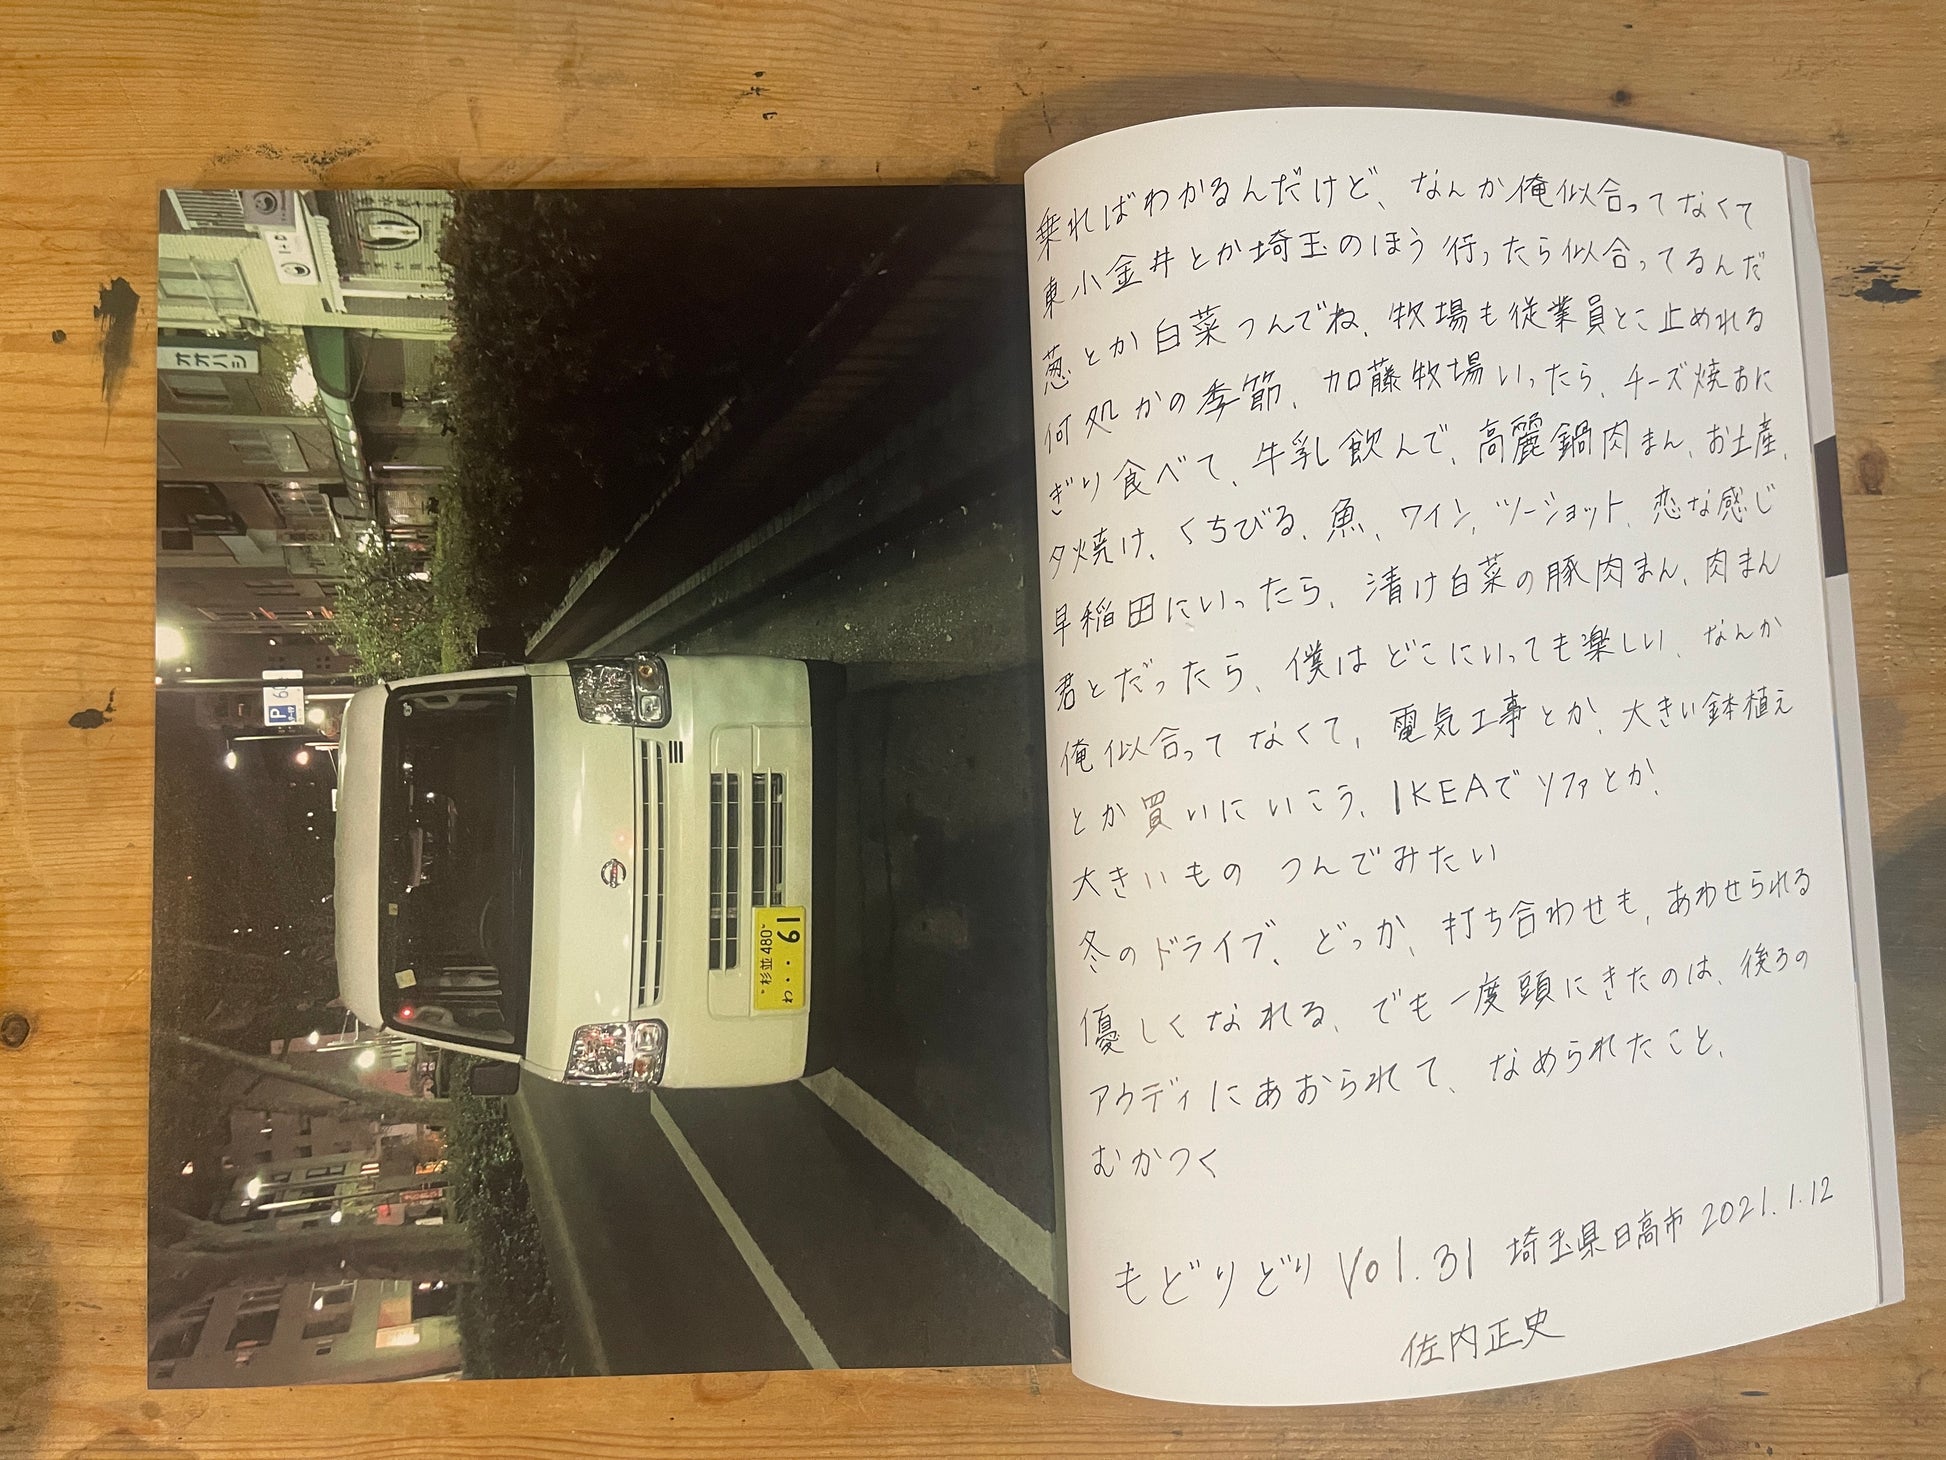 オオハシ
P
60
杉並 480
わ ・・19
乗ればわかるんだけど、なんか俺似合ってなくて
東小金井とか埼玉のほう行ったら似合ってるんだ
葱とか白菜つんでね、牧場も従業員とこ止めれる
何処かの季節、加藤牧場いったら、チーズ焼おに
ぎり食べて、牛乳飲んで、高麗鍋肉まん、お土産、
夕焼け、くちびる、魚、ワイン、ツーショット、恋な感じ
早稲田にいったら、漬け白菜の豚肉まん、肉まん
君とだったら、僕はどこにいっても楽しい、なんか
俺似合ってなくて、電気工事とか、大きい鉢植え
とか買いにいこう、IKEAでソファとか、
大きいもの つんでみたい
冬のドライブ、どっか、打ち合わせも、あわせられる
優しくなれる、でも一度頭にきたのは、後ろの
アウディにあおられて、なめられたこと、
むかつく
もどりどり Vol.31 埼玉県日高市 2021.1.12
佐内正史